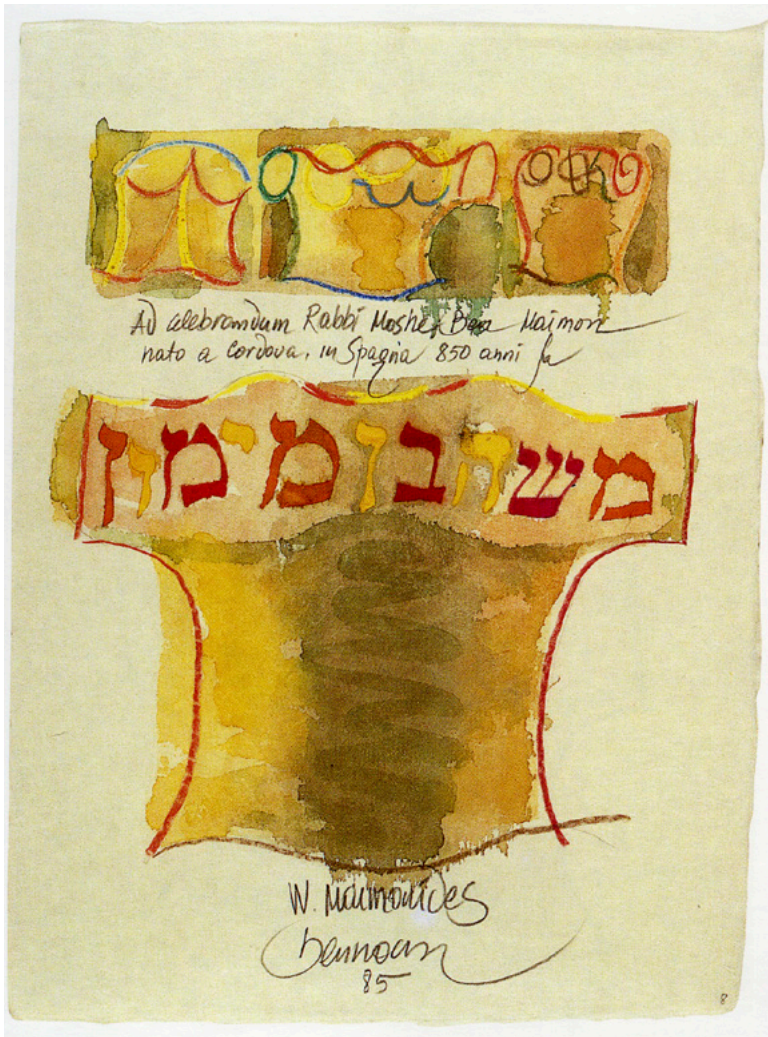 Ad celebrandum Rabbi Moshe Ben Maimon
nato a Cordova, in Spagna 850 anni fa
משהבןמימון
W. Maimonides
85
8